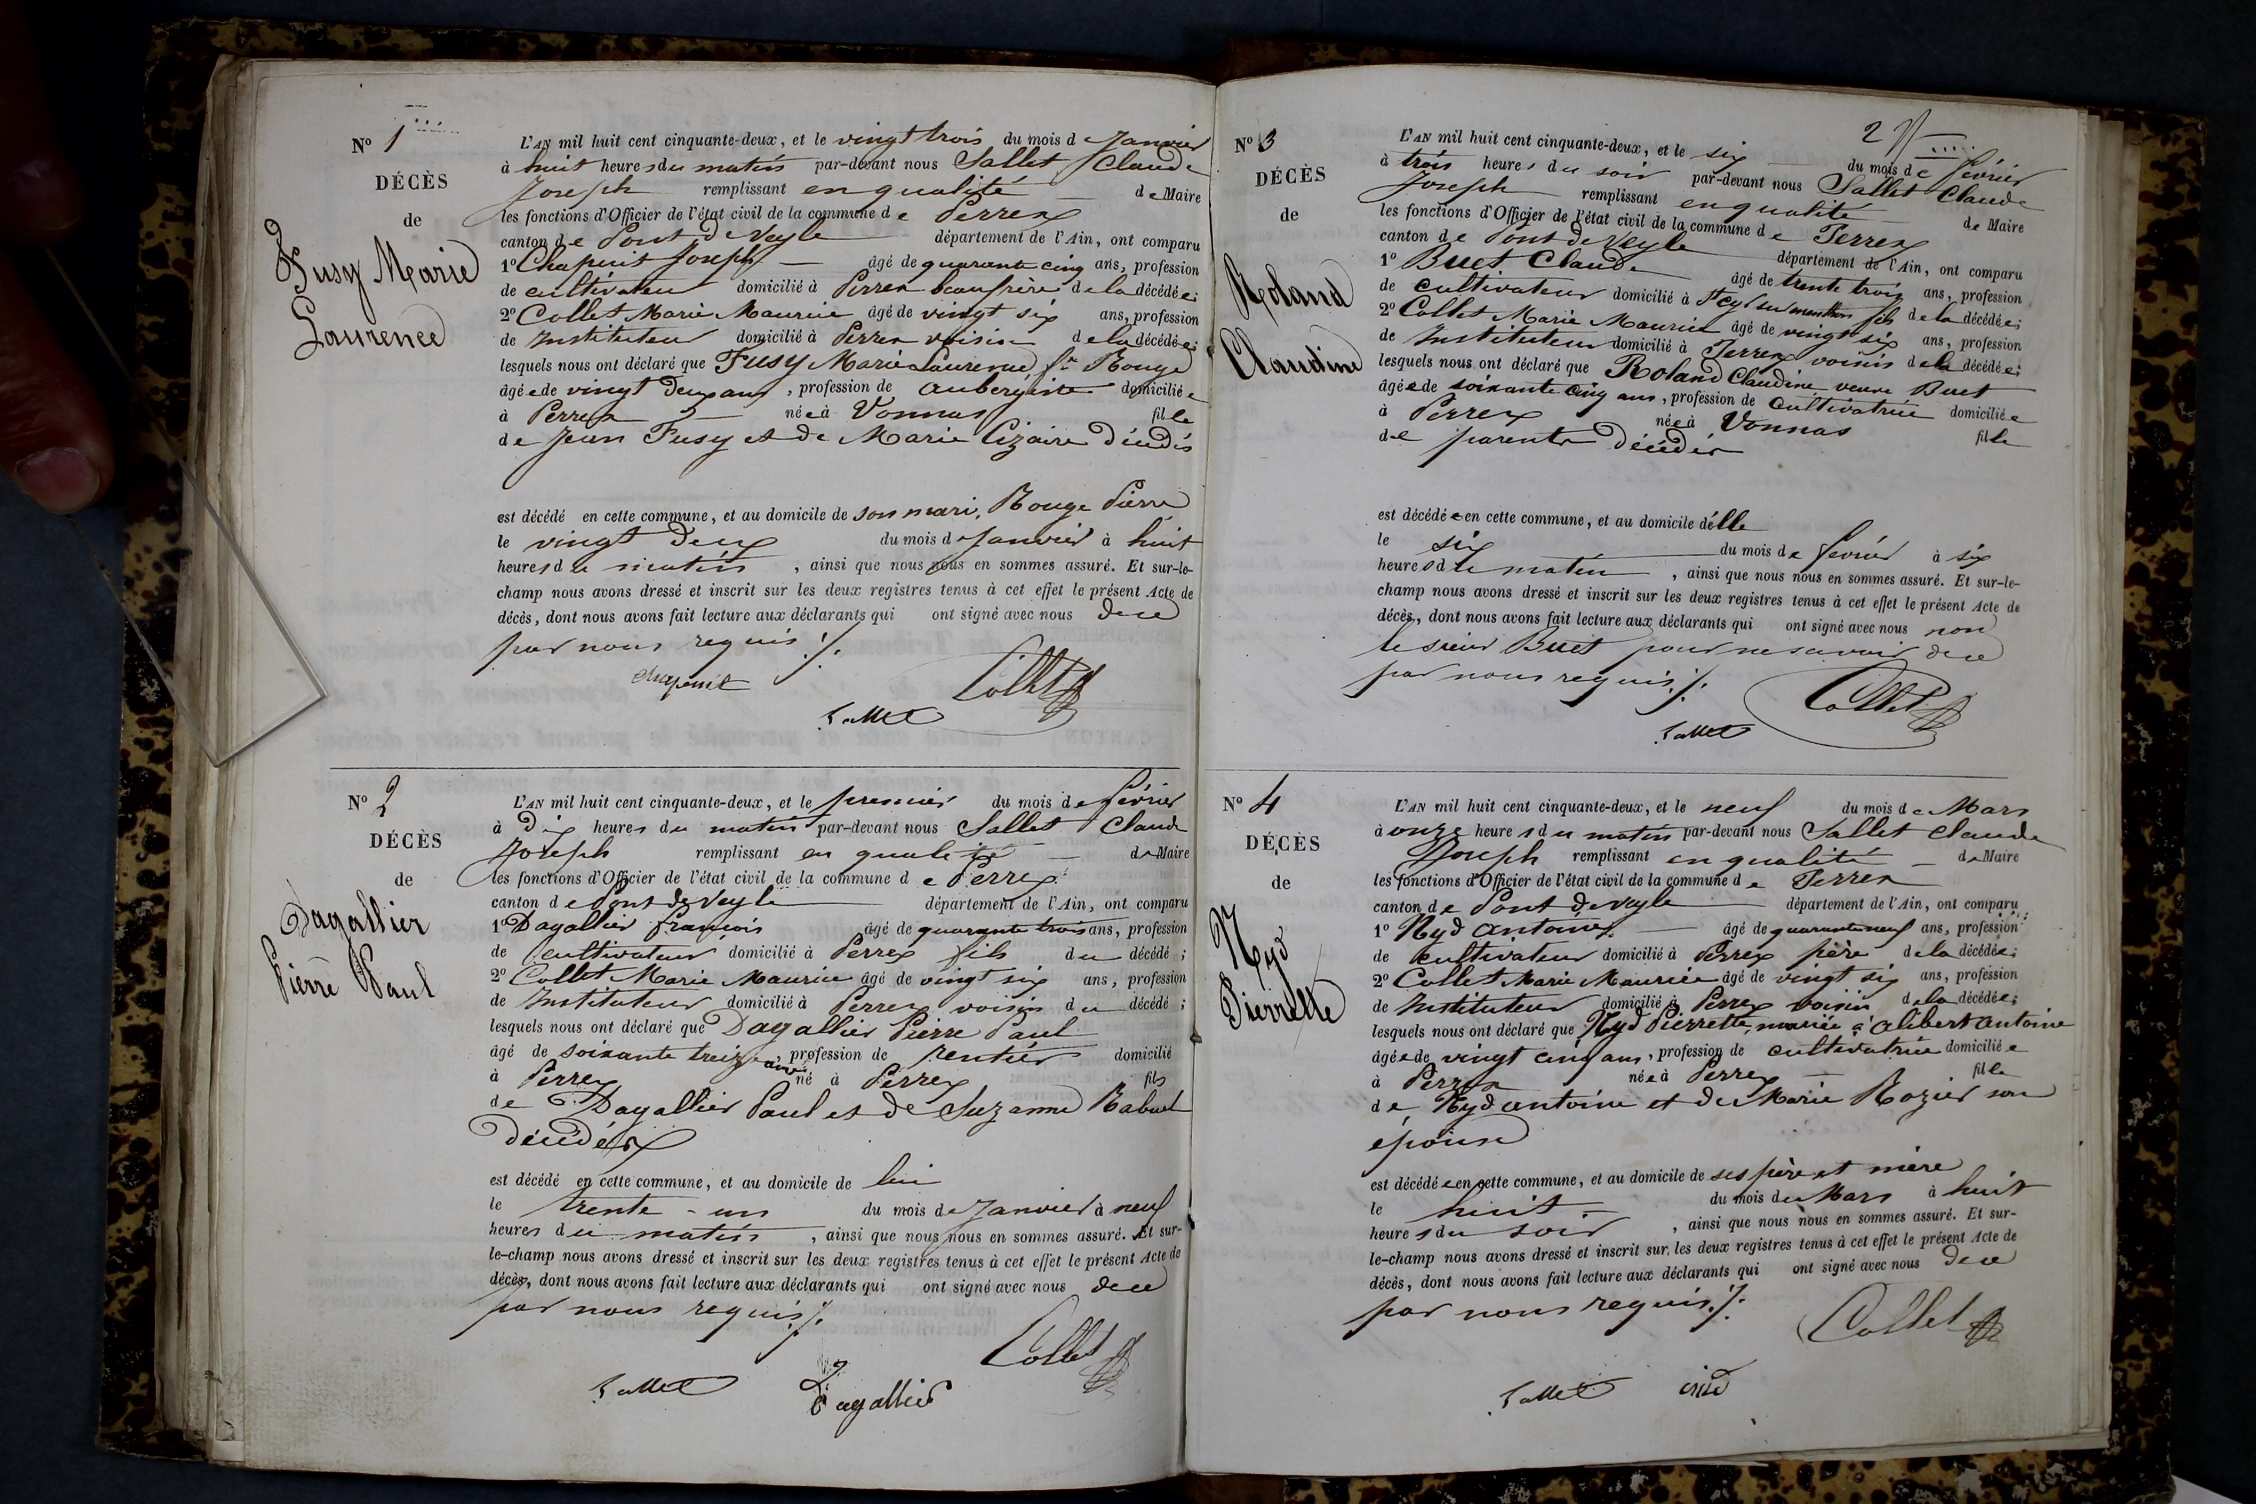 No 1
DÉCÈS
de
Fusy Marie
Laurence
L'AN mil huit cent cinquante-deux, et le vingt trois du mois de Janvier
à huit heures du matin par-devant nous Sallet Claude
Joseph remplissant en qualité de Maire
les fonctions d'Officier de l'état civil de la commune de Perrex
canton de Pont de Veyle département de l'Ain, ont comparu
1o Chapuit Joseph âgé de quarante cinq ans, profession
de cultivateur domicilié à Perrex beaufrère de la décédée;
2o Collet Marie Maurice âgé de vingt six ans, profession
de Instituteur domicilié à Perrex voisin de la décédée;
lesquels nous ont déclaré que Fusy Marie Laurence fe Rouge
âgée de vingt deux ans, profession de aubergiste domiciliée
à Perrex née à Vonnas fille
de Jean Fusy et de Marie Cizaire décédés
est décédé en cette commune, et au domicile de son mari, Rouge Pierre
le vingt deux du mois de Janvier à huit
heures du matin, ainsi que nous nous en sommes assuré. Et sur-le-
champ nous avons dressé et inscrit sur les deux registres tenus à cet effet le présent Acte de
décès, dont nous avons fait lecture aux déclarants qui ont signé avec nous de ce
par nous requis ./.
chapuit Collet
Sallet
No 2
DÉCÈS
de
Dagallier
Pierre Paul
L'AN mil huit cent cinquante-deux, et le premier du mois de février
à Dix heures du matin par-devant nous Sallet Claude
Joseph remplissant en qualité de Maire
les fonctions d'Officier de l'état civil de la commune de Perrex
canton de Pont de Veyle département de l'Ain, ont comparu
1o Dagallier françois âgé de quarante trois ans, profession
de cultivateur domicilié à Perrex fils du décédé;
2o Collet Marie Maurice âgé de vingt six ans, profession
de Instituteur domicilié à Perrex voisin du décédé;
lesquels nous ont déclaré que Dagallier Pierre Paul
âgé de soixante treize ans, profession de rentier domicilié
à Perrex né à Perrex fils
de Dagallier Paul et de Suzanne Rabuel
décédés
est décédé en cette commune, et au domicile de lui
le trente - un du mois de Janvier à neuf
heures du matin, ainsi que nous nous en sommes assuré. Et sur-
le-champ nous avons dressé et inscrit sur les deux registres tenus à cet effet le présent Acte de
décès, dont nous avons fait lecture aux déclarants qui ont signé avec nous de ce
par nous requis ./.
Collet
Sallet Dagallier
2
No 3
DÉCÈS
de
Roland
Claudine
L'AN mil huit cent cinquante-deux, et le six du mois de février
à trois heures du soir par-devant nous Sallet Claude
Joseph remplissant en qualité de Maire
les fonctions d'Officier de l'état civil de la commune de Perrex
canton de Pont de Veyle département de l'Ain, ont comparu
1o Buet Claude âgé de trente trois ans, profession
de cultivateur domicilié à St Cyr sur menthon fils de la décédée;
2o Collet Marie Maurice âgé de vingt six ans, profession
de Instituteur domicilié à Perrex voisin de la décédée;
lesquels nous ont déclaré que Roland Claudine veuve Buet
âgée de soixante cinq ans, profession de cultivatrice domiciliée
à Perrex née à Vonnas fille
de parents décédés
est décédée en cette commune, et au domicile d'elle
le six du mois de février à six
heures du matin, ainsi que nous nous en sommes assuré. Et sur-le-
champ nous avons dressé et inscrit sur les deux registres tenus à cet effet le présent Acte de
décès, dont nous avons fait lecture aux déclarants qui ont signé avec nous non
le sieur Buet pour ne savoir de ce
par nous requis ./.
Collet
Sallet
No 4
DÉCÈS
de
Nyd
Pierrette
L'AN mil huit cent cinquante-deux, et le neuf du mois de Mars
à onze heures du matin par-devant nous Sallet Claude
Joseph remplissant en qualité de Maire
les fonctions d'Officier de l'état civil de la commune de Perrex
canton de Pont de Veyle département de l'Ain, ont comparu
1o Nyd antoine âgé de quarante neuf ans, profession
de cultivateur domicilié à Perrex père de la décédée;
2o Collet Marie Maurice âgé de vingt six ans, profession
de Instituteur domicilié à Perrex voisin de la décédée;
lesquels nous ont déclaré que Nyd Pierrette, mariée à alibert antoine
âgée de vingt cinq ans, profession de cultivatrice domiciliée
à Perrex née à Perrex fille
de Nyd antoine et de Marie Rozier son
épouse
est décédée en cette commune, et au domicile de ses père et mère
le huit du mois de Mars à huit
heures du soir, ainsi que nous nous en sommes assuré. Et sur-
le-champ nous avons dressé et inscrit sur les deux registres tenus à cet effet le présent Acte de
décès, dont nous avons fait lecture aux déclarants qui ont signé avec nous de ce
par nous requis ./.
Collet
Sallet